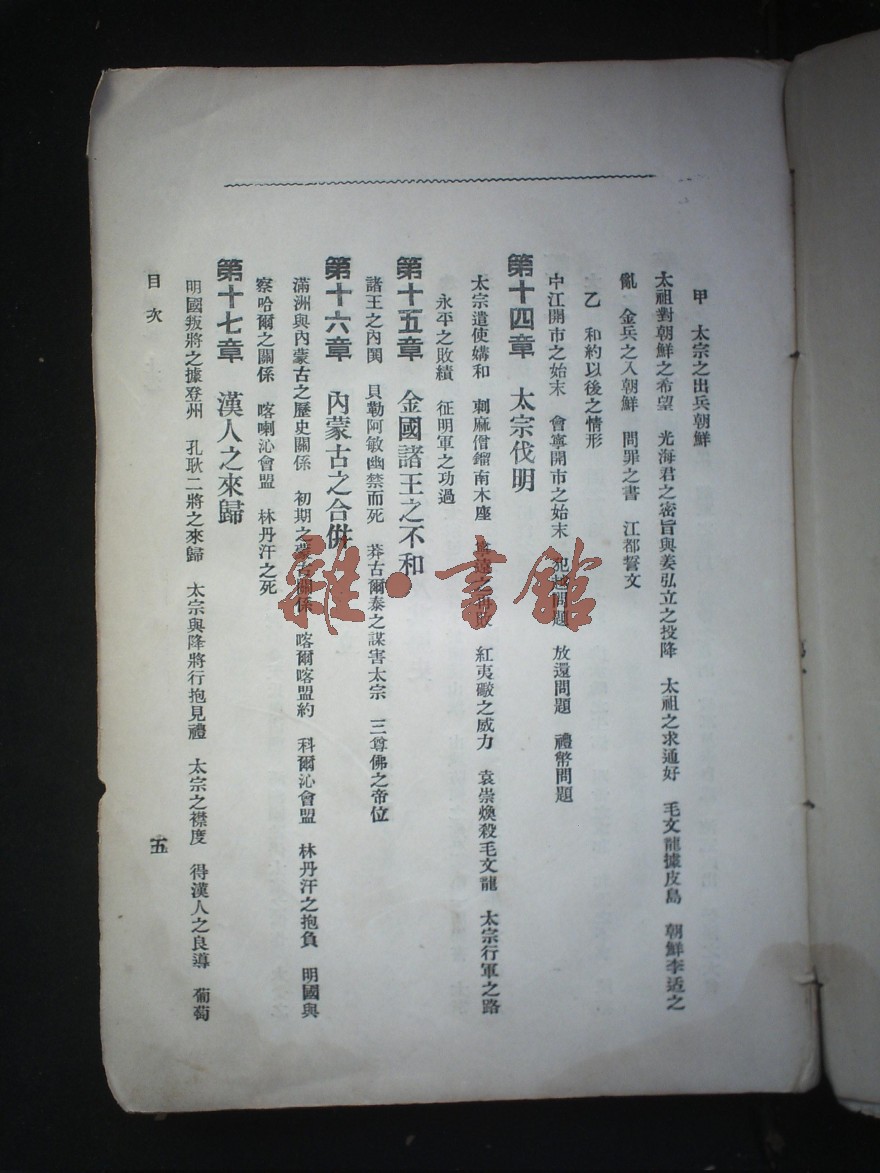 甲　太宗之出兵朝鮮
太祖對朝鮮之希望　光海君之密旨與姜弘立之投降　太祖之求通好　毛文龍據皮島　朝鮮李适之
亂　金兵之入朝鮮　問罪之書　江都誓文
乙　和約以後之情形
中江開市之始末　會寧開市之始末　犯越問題　放還問題　禮幣問題
第十四章　太宗伐明
太宗遣使媾和　刺麻僧鎦南木座　遠之　紅夷礮之威力　袁崇煥殺毛文龍　太宗行軍之路
永平之敗績　征明軍之功過
第十五章　金國諸王之不和
諸王之內鬨　貝勒阿敏幽禁而死　莽古爾泰之謀害太宗　三尊佛之帝位
第十六章　內蒙古之合併
滿洲與內蒙古之歷史關係　初期之蒙古關係　喀爾喀盟約　科爾沁會盟　林丹汗之抱負　明國與
察哈爾之關係　喀喇沁會盟　林丹汗之死
第十七章　漢人之來歸
明國叛將之據登州　孔耿二將之來歸　太宗與降將行抱見禮　太宗之襟度　得漢人之良導　葡萄
目次
五
雜·書館